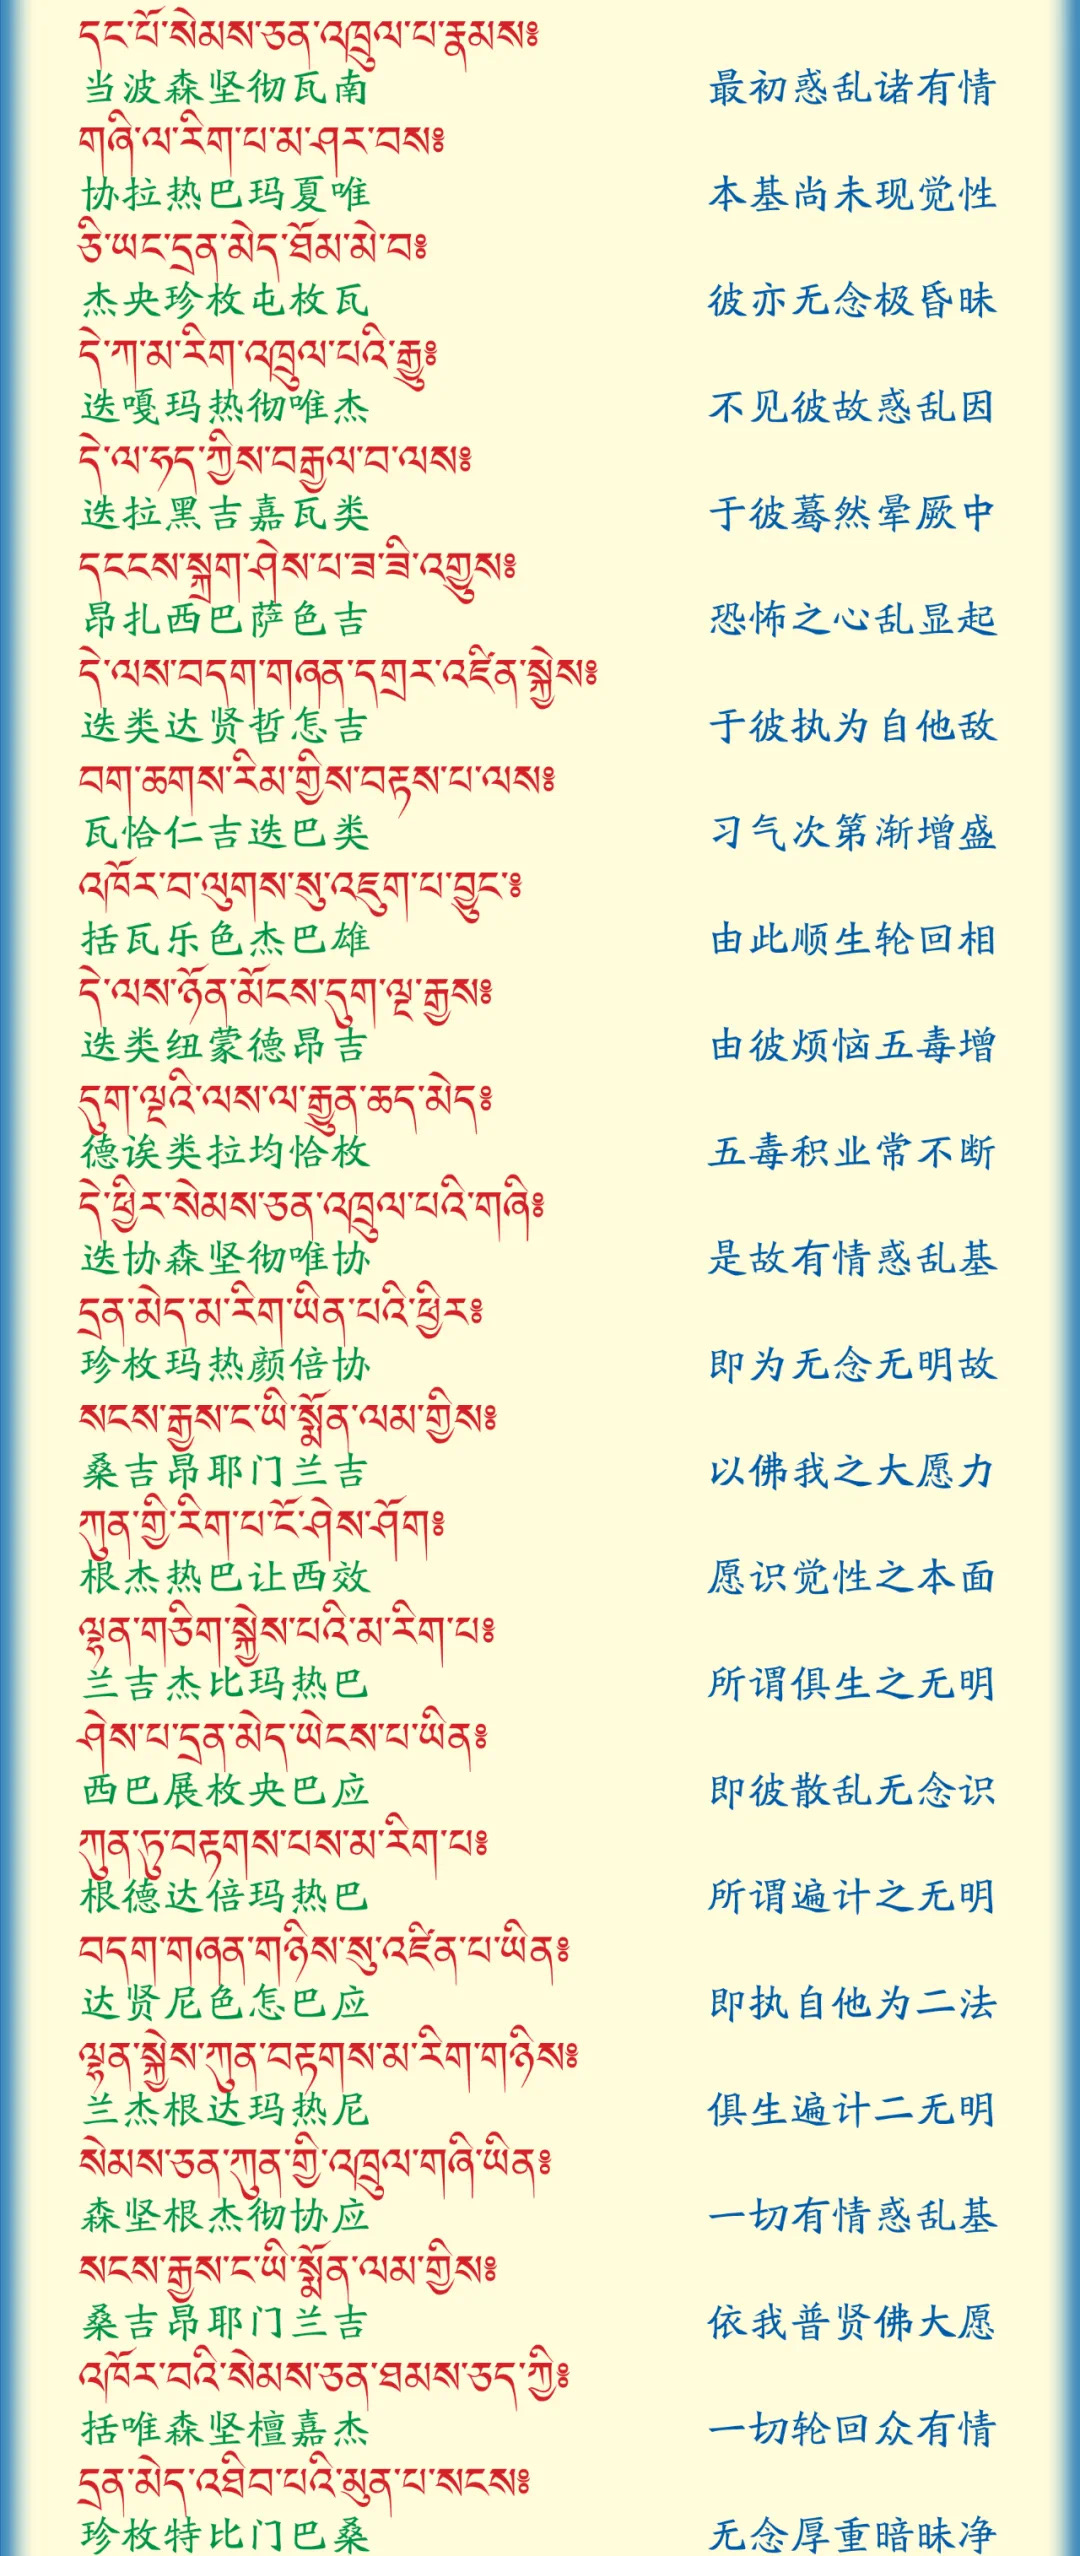 དང་པོ་སེམས་ཅན་འཁྲུལ་པ་རྣམས༔
当波森坚彻瓦南 最初惑乱诸有情
གཞི་ལ་རིག་པ་མ་ཤར་བས༔
协拉热巴玛夏唯 本基尚未现觉性
ཅི་ཡང་དྲན་མེད་ཐོམ་མེ་བ༔
杰央珍枚屯枚瓦 彼亦无念极昏昧
དེ་ཀ་མ་རིག་འཁྲུལ་པའི་རྒྱུ༔
迭嘎玛热彻唯杰 不见彼故惑乱因
དེ་ལ་ཧད་ཀྱིས་བརྒྱལ་བ་ལས༔
迭拉黑吉嘉瓦类 于彼蓦然晕厥中
དངངས་སྐྲག་ཤེས་པ་ཟ་ཟི་འགྱུས༔
昂扎西巴萨色吉 恐怖之心乱显起
དེ་ལས་བདག་གཞན་དགྲར་འཛིན་སྐྱེས༔
迭类达贤哲怎吉 于彼执为自他敌
བག་ཆགས་རིམ་གྱིས་བརྟས་པ་ལས༔
瓦恰仁吉迭巴类 习气次第渐增盛
འཁོར་བ་ལུགས་སུ་འཇུག་པ་བྱུང་༔
括瓦乐色杰巴雄 由此顺生轮回相
དེ་ལས་ཉོན་མོངས་དུག་ལྔ་རྒྱས༔
迭类纽蒙德昂吉 由彼烦恼五毒增
དུག་ལྔའི་ལས་ལ་རྒྱུན་ཆད་མེད༔
德诶类拉均恰枚 五毒积业常不断
དེ་ཕྱིར་སེམས་ཅན་འཁྲུལ་པའི་གཞི༔
迭协森坚彻唯协 是故有情惑乱基
དྲན་མེད་མ་རིག་ཡིན་པའི་ཕྱིར༔
珍枚玛热颜倍协 即为无念无明故
སངས་རྒྱས་ང་ཡི་སྨོན་ལམ་གྱིས༔
桑吉昂耶门兰吉 以佛我之大愿力
ཀུན་གྱི་རིག་པ་ངོ་ཤེས་ཤོག༔
根杰热巴让西效 愿识觉性之本面
ལྷན་གཅིག་སྐྱེས་པའི་མ་རིག་པ༔
兰吉杰比玛热巴 所谓俱生之无明
ཤེས་པ་དྲན་མེད་ཡེངས་པ་ཡིན༔
西巴展枚央巴应 即彼散乱无念识
ཀུན་ཏུ་བརྟགས་པས་མ་རིག་པ༔
根德达倍玛热巴 所谓遍计之无明
བདག་གཞན་གཉིས་སུ་འཛིན་པ་ཡིན༔
达贤尼色怎巴应 即执自他为二法
ལྷན་སྐྱེས་ཀུན་བརྟགས་མ་རིག་གཉིས༔
兰杰根达玛热尼 俱生遍计二无明
སེམས་ཅན་ཀུན་གྱི་འཁྲུལ་གཞི་ཡིན༔
森坚根杰彻协应 一切有情惑乱基
སངས་རྒྱས་ང་ཡི་སྨོན་ལམ་གྱིས༔
桑吉昂耶门兰吉 依我普贤佛大愿
འཁོར་བའི་སེམས་ཅན་ཐམས་ཅད་ཀྱི༔
括唯森坚檀嘉杰 一切轮回众有情
དྲན་མེད་འཐིབ་པའི་མུན་པ་སངས༔
珍枚特比门巴桑 无念厚重暗昧净